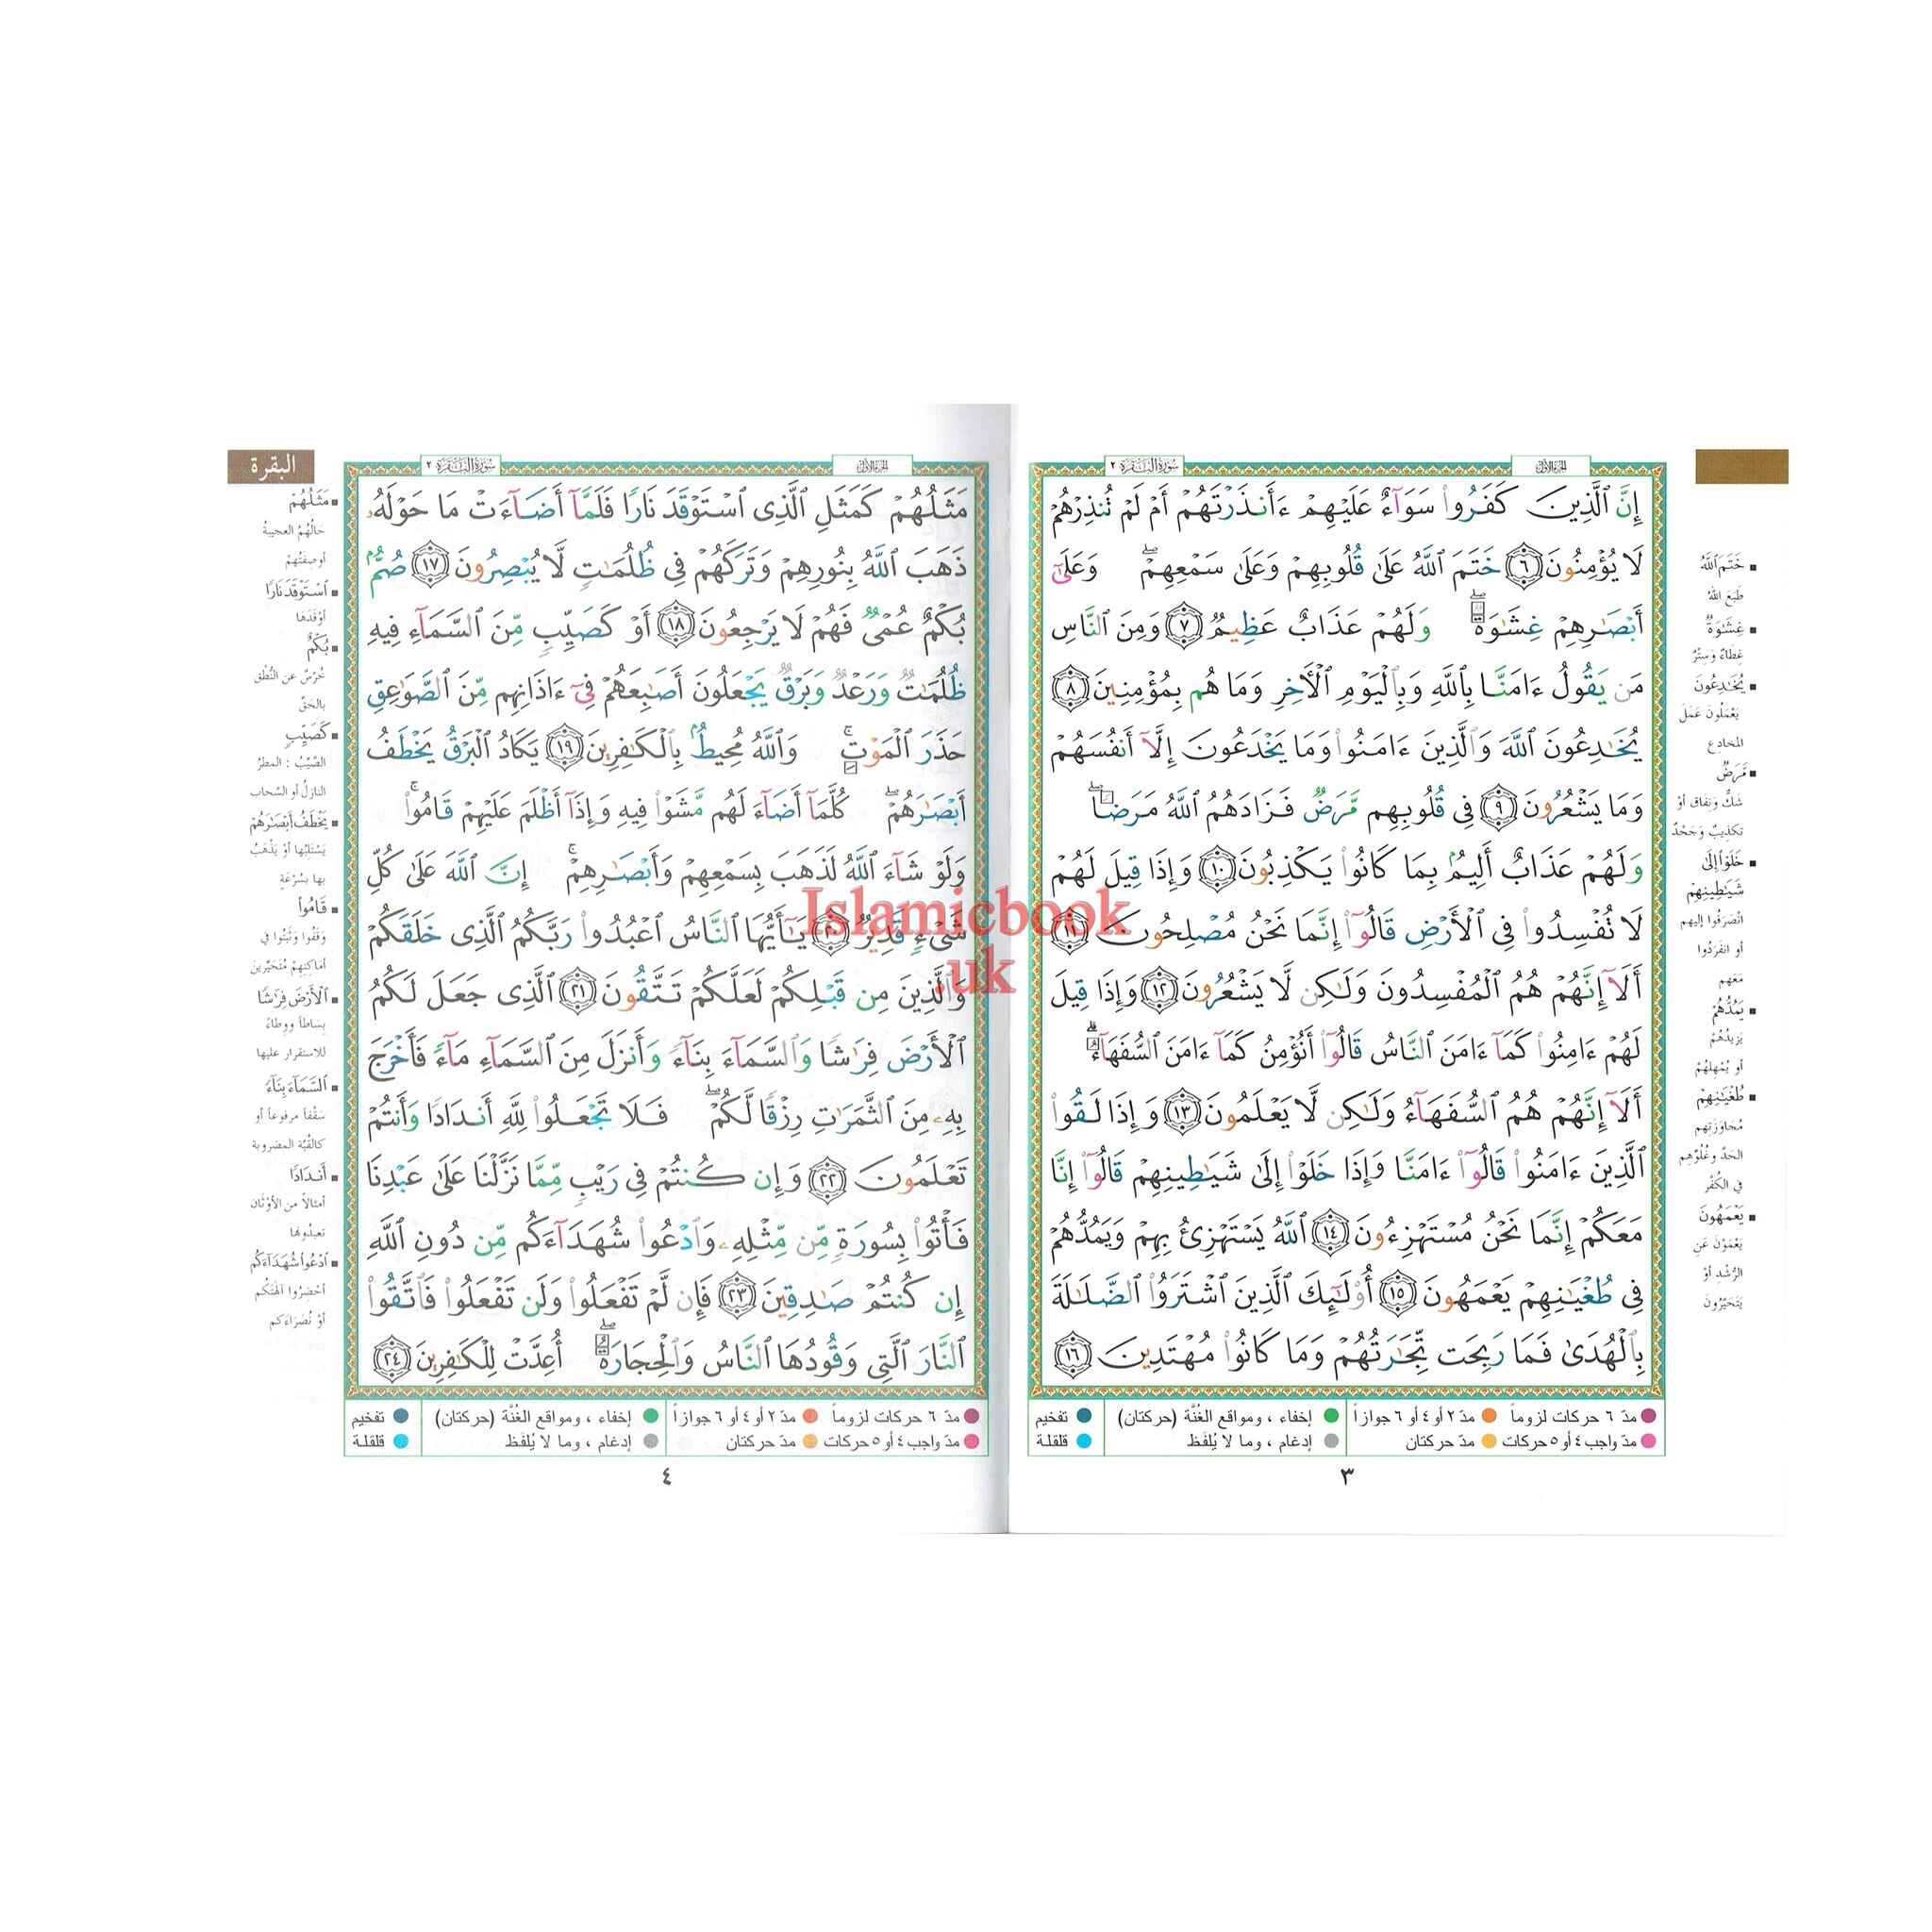 الجزء الأول
سورة البقرة ٢
إِنَّ ٱلَّذِينَ كَفَرُوا۟ سَوَآءٌ عَلَيْهِمْ ءَأَنذَرْتَهُمْ أَمْ لَمْ تُنذِرْهُمْ
لَا يُؤْمِنُونَ ٦ خَتَمَ ٱللَّهُ عَلَىٰ قُلُوبِهِمْ وَعَلَىٰ سَمْعِهِمْ ۖ وَعَلَىٰٓ
أَبْصَـٰرِهِمْ غِشَـٰوَةٌ ۖ وَلَهُمْ عَذَابٌ عَظِيمٌ ٧ وَمِنَ ٱلنَّاسِ
مَن يَقُولُ ءَامَنَّا بِٱللَّهِ وَبِٱلْيَوْمِ ٱلْـَٔاخِرِ وَمَا هُم بِمُؤْمِنِينَ ٨
يُخَـٰدِعُونَ ٱللَّهَ وَٱلَّذِينَ ءَامَنُوا۟ وَمَا يَخْدَعُونَ إِلَّآ أَنفُسَهُمْ
وَمَا يَشْعُرُونَ ٩ فِى قُلُوبِهِم مَّرَضٌ فَزَادَهُمُ ٱللَّهُ مَرَضًا ۖ
وَلَهُمْ عَذَابٌ أَلِيمٌۢ بِمَا كَانُوا۟ يَكْذِبُونَ ١٠ وَإِذَا قِيلَ لَهُمْ
لَا تُفْسِدُوا۟ فِى ٱلْأَرْضِ قَالُوٓا۟ إِنَّمَا نَحْنُ مُصْلِحُونَ ١١
أَلَآ إِنَّهُمْ هُمُ ٱلْمُفْسِدُونَ وَلَـٰكِن لَّا يَشْعُرُونَ ١٢ وَإِذَا قِيلَ
لَهُمْ ءَامِنُوا۟ كَمَآ ءَامَنَ ٱلنَّاسُ قَالُوٓا۟ أَنُؤْمِنُ كَمَآ ءَامَنَ ٱلسُّفَهَآءُ ۗ
أَلَآ إِنَّهُمْ هُمُ ٱلسُّفَهَآءُ وَلَـٰكِن لَّا يَعْلَمُونَ ١٣ وَإِذَا لَقُوا۟
ٱلَّذِينَ ءَامَنُوا۟ قَالُوٓا۟ ءَامَنَّا وَإِذَا خَلَوْا۟ إِلَىٰ شَيَـٰطِينِهِمْ قَالُوٓا۟ إِنَّا
مَعَكُمْ إِنَّمَا نَحْنُ مُسْتَهْزِءُونَ ١٤ ٱللَّهُ يَسْتَهْزِئُ بِهِمْ وَيَمُدُّهُمْ
فِى طُغْيَـٰنِهِمْ يَعْمَهُونَ ١٥ أُو۟لَـٰٓئِكَ ٱلَّذِينَ ٱشْتَرَوُا۟ ٱلضَّلَـٰلَةَ
بِٱلْهُدَىٰ فَمَا رَبِحَت تِّجَـٰرَتُهُمْ وَمَا كَانُوا۟ مُهْتَدِينَ ١٦
خَتَمَ ٱللَّهُ
طَبَعَ اللهُ
غِشَـٰوَةٌ
غِطَاءٌ وَسِتْرٌ
يُخَـٰدِعُونَ
يَعْمَلُونَ عَمَلَ
المخادع
مَّرَضٌ
شَكٌّ وَنِفَاق أَوْ
تكذيبٌ وَجَحْدٌ
خَلَوْا۟ إِلَىٰ
شَيَـٰطِينِهِمْ
انْصَرَفُوا إليهم
أو انفَرَدُوا
مَعَهم
يَمُدُّهُمْ
يَزيدُهُمْ
أو يُمْهِلهُمْ
طُغْيَـٰنِهِمْ
مُجَاوَزَتِهم
الحَدَّ وغُلُوِّهِم
في الكُفْر
يَعْمَهُونَ
يَعْمَوْنَ عَنِ
الرُّشْدِ أَوْ
يَتَحَيَّرُونَ
مدّ ٦ حركات لزوماً مدّ ٢ أو ٤ أو ٦ جوازاً إخفاء ، ومواقع الغُنَّة (حركتان) تفخيم
مدّ واجب ٤ أو ٥ حركات مدّ حركتان إدغام ، وما لا يُلفَظ قلقلة
٣
الجزء الأول
سورة البقرة ٢
البقرة
مَثَلُهُمْ كَمَثَلِ ٱلَّذِى ٱسْتَوْقَدَ نَارًا فَلَمَّآ أَضَآءَتْ مَا حَوْلَهُۥ
ذَهَبَ ٱللَّهُ بِنُورِهِمْ وَتَرَكَهُمْ فِى ظُلُمَـٰتٍ لَّا يُبْصِرُونَ ١٧ صُمٌّۢ
بُكْمٌ عُمْىٌ فَهُمْ لَا يَرْجِعُونَ ١٨ أَوْ كَصَيِّبٍ مِّنَ ٱلسَّمَآءِ فِيهِ
ظُلُمَـٰتٌ وَرَعْدٌ وَبَرْقٌ يَجْعَلُونَ أَصَـٰبِعَهُمْ فِىٓ ءَاذَانِهِم مِّنَ ٱلصَّوَٰعِقِ
حَذَرَ ٱلْمَوْتِ ۚ وَٱللَّهُ مُحِيطٌۢ بِٱلْكَـٰفِرِينَ ١٩ يَكَادُ ٱلْبَرْقُ يَخْطَفُ
أَبْصَـٰرَهُمْ ۖ كُلَّمَآ أَضَآءَ لَهُم مَّشَوْا۟ فِيهِ وَإِذَآ أَظْلَمَ عَلَيْهِمْ قَامُوا۟ ۚ
وَلَوْ شَآءَ ٱللَّهُ لَذَهَبَ بِسَمْعِهِمْ وَأَبْصَـٰرِهِمْ ۚ إِنَّ ٱللَّهَ عَلَىٰ كُلِّ
شَىْءٍ قَدِيرٌ ٢٠ يَـٰٓأَيُّهَا ٱلنَّاسُ ٱعْبُدُوا۟ رَبَّكُمُ ٱلَّذِى خَلَقَكُمْ
وَٱلَّذِينَ مِن قَبْلِكُمْ لَعَلَّكُمْ تَتَّقُونَ ٢١ ٱلَّذِى جَعَلَ لَكُمُ
ٱلْأَرْضَ فِرَٰشًا وَٱلسَّمَآءَ بِنَآءً وَأَنزَلَ مِنَ ٱلسَّمَآءِ مَآءً فَأَخْرَجَ
بِهِۦ مِنَ ٱلثَّمَرَٰتِ رِزْقًا لَّكُمْ ۖ فَلَا تَجْعَلُوا۟ لِلَّهِ أَندَادًا وَأَنتُمْ
تَعْلَمُونَ ٢٢ وَإِن كُنتُمْ فِى رَيْبٍ مِّمَّا نَزَّلْنَا عَلَىٰ عَبْدِنَا
فَأْتُوا۟ بِسُورَةٍ مِّن مِّثْلِهِۦ وَٱدْعُوا۟ شُهَدَآءَكُم مِّن دُونِ ٱللَّهِ
إِن كُنتُمْ صَـٰدِقِينَ ٢٣ فَإِن لَّمْ تَفْعَلُوا۟ وَلَن تَفْعَلُوا۟ فَٱتَّقُوا۟
ٱلنَّارَ ٱلَّتِى وَقُودُهَا ٱلنَّاسُ وَٱلْحِجَارَةُ ۖ أُعِدَّتْ لِلْكَـٰفِرِينَ ٢٤
مَثَلُهُمْ
حَالُهُمُ العجيبةُ
أو صِفَتُهُمْ
ٱسْتَوْقَدَ نَارًا
أَوْقَدَهَا
بُكْمٌ
خُرْسٌ عن النُّطْقِ
بالحَقِّ
كَصَيِّبٍ
الصَّيِّبُ : المطرُ
النازلُ أو السَّحاب
يَخْطَفُ أَبْصَـٰرَهُمْ
يَسْتَلِبُها أوْ يَذْهَبُ
بها بسُرْعَةٍ
قَامُوا۟
وَقَفُوا وَثَبَتُوا في
أماكِنِهِمْ مُتَحَيِّرِينَ
ٱلْأَرْضَ فِرَٰشًا
بِسَاطاً ووِطَاءً
للاستقرار عليها
ٱلسَّمَآءَ بِنَآءً
سَقْفاً مرفوعاً أو
كالقُبَّة المضروبة
أَندَادًا
أمثالاً من الأوْثَانِ
تعبدُونها
ٱدْعُوا۟ شُهَدَآءَكُم
أحْضِرُوا آلهتَكُم
أوْ نُصَرَاءَكم
مدّ ٦ حركات لزوماً مدّ ٢ أو ٤ أو ٦ جوازاً إخفاء ، ومواقع الغُنَّة (حركتان) تفخيم
مدّ واجب ٤ أو ٥ حركات مدّ حركتان إدغام ، وما لا يُلفَظ قلقلة
٤
Islamicbook
.uk